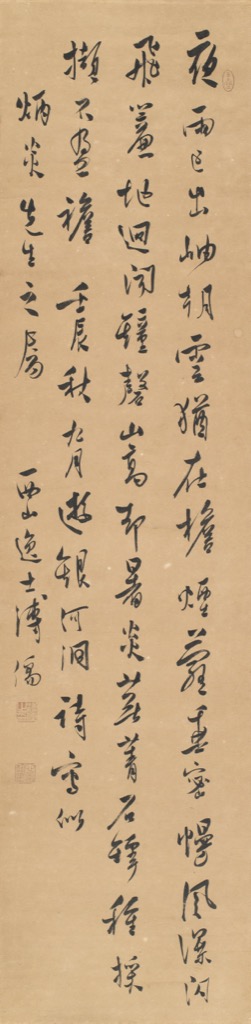 夜雨已出岫朝雲猶在檐煙蘿垂密幔風瀑閃
飛簾地迥聞鐘磬山高却暑炎蕪菁石罅種採
擷不盈襜 壬辰秋九月遊銀河洞詩寫似
炳炎先生之屬 西山逸士溥儒